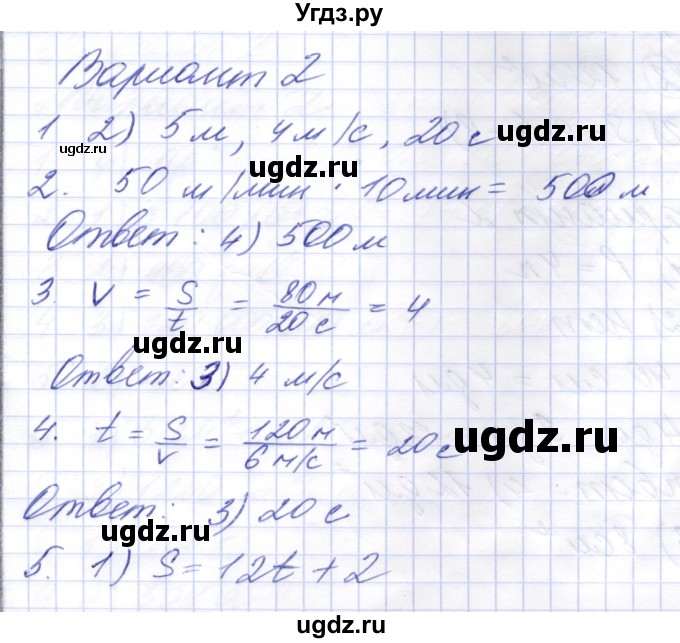 Угдз.ру
Вариант 2
1 2) 5 м, 4 м/с, 20 с
ugdz.ru ugdz.ru ugdz.ru
2. 50 м/мин · 10 мин = 500 м
Ответ: 4) 500 м
3. v = S/t = 80 м/20 с = 4
ugdz.ru
Ответ: 3) 4 м/с
4. t = S/v = 120 м/6 м/с = 20 с
ugdz.ru
Ответ: 3) 20 с
ugdz.ru
5. 1) S = 12t + 2
ugdz.ru ugdz.ru